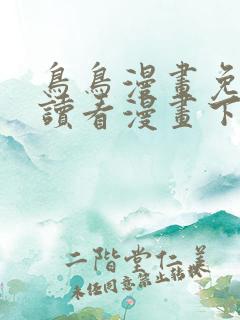 鳥鳥漫畫免
讀看漫畫下
二階堂仁美
未任同意禁止轉載